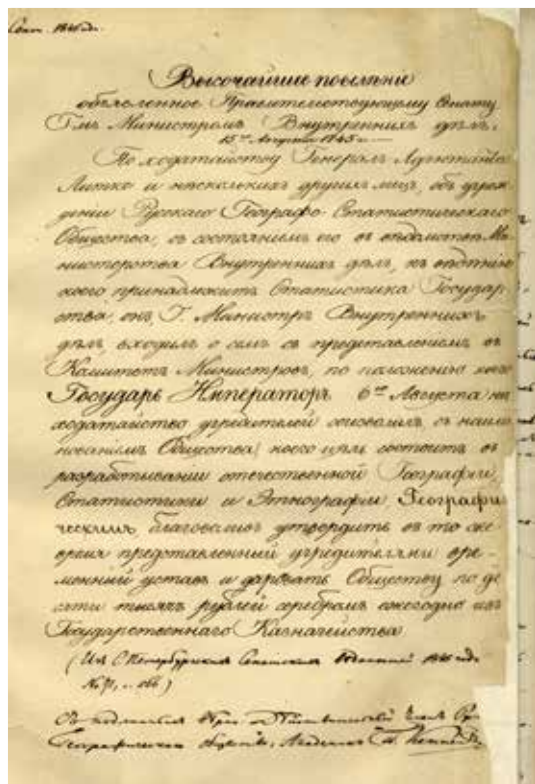 1845 года.
Высочайшие повелѣніе
объявленное Правительствующему Сенату
Г-мъ Министромъ Внутреннихъ дѣлъ.
15го Августа 1845 г.
По ходатайству Генералъ Адъютанта
Литке и нѣсколькихъ другихъ лицъ, объ учреж
деніи Русскаго Географо-Статистическаго
Общества, съ состояніемъ его въ вѣдомствѣ Ми
нистерства Внутреннихъ дѣлъ, къ
коего принадлежитъ Статистика Государ
ства, онъ, Г. Министръ Внутреннихъ
дѣлъ, входилъ о семъ съ представленіемъ въ
Комитетъ Министровъ, по положенію коего
Государь Императоръ 6го Августа на
ходатайство учредителей соизволилъ, съ наим
нованіемъ Общества, коего цѣль состоитъ въ
разработываніи отечественной Географіи,
Статистики и Этнографіи Географи
ческимъ благоволилъ утвердить въ то же
время представленный учредителями вре-
менный уставъ и даровать Обществу по де
сяти тысячъ рублей серебромъ ежегодно изъ
Государственнаго Казначейства
(Изъ С.Петербургскихъ Сенатскихъ Вѣдомостей 1845 года
№71,)
Съ подлиннымъ Дѣйствительный Членъ
Географическаго общества, Академикъ